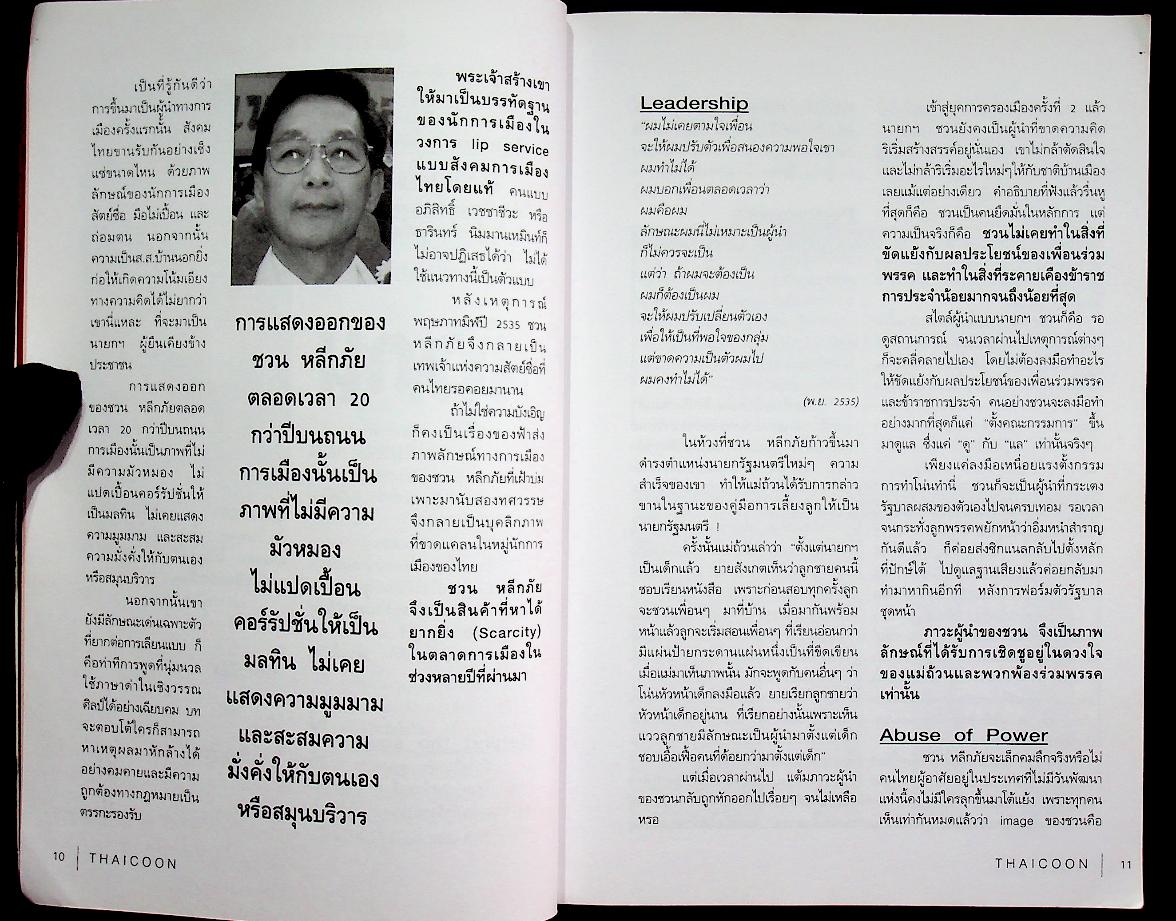 เป็นที่รู้กันดีว่า
การขึ้นมาเป็นผู้นำทางการ
เมืองครั้งแรกนั้น สังคม
ไทยขานรับกันอย่างเซ็ง
แซ่ขนาดไหน ด้วยภาพ
ลักษณ์ของนักการเมือง
สัตย์ซื่อ มือไม่เปื้อน และ
ถ่อมตน นอกจากนั้น
ความเป็นส.ส.บ้านนอกยิ่ง
ก่อให้เกิดความโน้มเอียง
ทางความคิดได้ไม่ยากว่า
เขานี่แหละ ที่จะมาเป็น
นายกฯ ผู้ยืนเคียงข้าง
ประชาชน
การแสดงออก
ของชวน หลีกภัยตลอด
เวลา 20 กว่าปีบนถนน
การเมืองนั้นเป็นภาพที่ไม่
มีความมัวหมอง ไม่
แปดเปื้อนคอร์รัปชั่นให้
เป็นมลทิน ไม่เคยแสดง
ความมูมมาม และสะสม
ความมั่งคั่งให้กับตนเอง
หรือสมุนบริวาร
นอกจากนั้นเขา
ยังมีลักษณะเด่นเฉพาะตัว
ที่ยากต่อการเลียนแบบ ก็
คือท่าทีการพูดที่นุ่มนวล
ใช้ภาษาด่าในเชิงวรรณ
ศิลป์ได้อย่างเฉียบคม บท
จะตอบโต้ใครก็สามารถ
หาเหตุผลมาหักล้างได้
อย่างคมคายและมีความ
ถูกต้องทางกฎหมายเป็น
ตรรกะรองรับ
การแสดงออกของ
ชวน หลีกภัย
ตลอดเวลา 20
กว่าปีบนถนน
การเมืองนั้นเป็น
ภาพที่ไม่มีความ
มัวหมอง
ไม่แปดเปื้อน
คอร์รัปชั่นให้เป็น
มลทิน ไม่เคย
แสดงความมูมมาม
และสะสมความ
มั่งคั่งให้กับตนเอง
หรือสมุนบริวาร
พระเจ้าสร้างเขา
ให้มาเป็นบรรทัดฐาน
ของนักการเมืองใน
วงการ lip service
แบบสังคมการเมือง
ไทยโดยแท้ คนแบบ
อภิสิทธิ์ เวชชาชีวะ หรือ
ธารินทร์ นิมมานเหมินท์ก็
ไม่อาจปฏิเสธได้ว่า ไม่ได้
ใช้แนวทางนี้เป็นตัวแบบ
หลังเหตุการณ์
พฤษภาทมิฬปี 2535 ชวน
หลีกภัยจึงกลายเป็น
เทพเจ้าแห่งความสัตย์ซื่อที่
คนไทยรอคอยมานาน
ถ้าไม่ใช่ความบังเอิญ
ก็คงเป็นเรื่องของฟ้าส่ง
ภาพลักษณ์ทางการเมือง
ของชวน หลีกภัยที่เฝ้าบ่ม
เพาะมานับสองทศวรรษ
จึงกลายเป็นบุคลิกภาพ
ที่ขาดแคลนในหมู่นักการ
เมืองของไทย
ชวน หลีกภัย
จึงเป็นสินค้าที่หาได้
ยากยิ่ง (Scarcity)
ในตลาดการเมืองใน
ช่วงหลายปีที่ผ่านมา
10 | THAICOON
Leadership
"ผมไม่เคยตามใจเพื่อน
จะให้ผมปรับตัวเพื่อสนองความพอใจเขา
ผมทำไม่ได้
ผมบอกเพื่อนตลอดเวลาว่า
ผมคือผม
ลักษณะผมนี่ไม่เหมาะเป็นผู้นำ
ก็ไม่ควรจะเป็น
แต่ว่า ถ้าผมจะต้องเป็น
ผมก็ต้องเป็นผม
จะให้ผมปรับเปลี่ยนตัวเอง
เพื่อให้เป็นที่พอใจของกลุ่ม
แต่ขาดความเป็นตัวผมไป
ผมคงทำไม่ได้"
(พ.ย. 2535)
ในห้วงที่ชวน หลีกภัยก้าวขึ้นมา
ดำรงตำแหน่งนายกรัฐมนตรีใหม่ๆ ความ
สำเร็จของเขา ทำให้แม่ถ้วนได้รับการกล่าว
ขานในฐานะของคู่มือการเลี้ยงลูกให้เป็น
นายกรัฐมนตรี !
ครั้งนั้นแม่ถ้วนเล่าว่า "ตั้งแต่นายกฯ
เป็นเด็กแล้ว ยายสังเกตเห็นว่าลูกชายคนนี้
ชอบเรียนหนังสือ เพราะก่อนสอบทุกครั้งลูก
จะชวนเพื่อนๆ มาที่บ้าน เมื่อมากันพร้อม
หน้าแล้วลูกจะเริ่มสอนเพื่อนๆ ที่เรียนอ่อนกว่า
มีแผ่นป้ายกระดานแผ่นหนึ่งเป็นที่ขีดเขียน
เมื่อแม่มาเห็นภาพนั้น มักจะพูดกับคนอื่นๆ ว่า
โน่นหัวหน้าเด็กลงมือแล้ว ยายเรียกลูกชายว่า
หัวหน้าเด็กอยู่นาน ที่เรียกอย่างนั้นเพราะเห็น
แววลูกชายมีลักษณะเป็นผู้นำมาตั้งแต่เด็ก
ชอบเอื้อเฟื้อคนที่ด้อยกว่ามาตั้งแต่เด็ก"
แต่เมื่อเวลาผ่านไป แต้มภาวะผู้นำ
ของชวนกลับถูกหักออกไปเรื่อยๆ จนไม่เหลือ
หรอ
เข้าสู่ยุคการครองเมืองครั้งที่ 2 แล้ว
นายกฯ ชวนยังคงเป็นผู้นำที่ขาดความคิด
ริเริ่มสร้างสรรค์อยู่นั่นเอง เขาไม่กล้าตัดสินใจ
และไม่กล้าริเริ่มอะไรใหม่ๆให้กับชาติบ้านเมือง
เลยแม้แต่อย่างเดียว คำอธิบายที่ฟังแล้วรื่นหู
ที่สุดก็คือ ชวนเป็นคนยึดมั่นในหลักการ แต่
ความเป็นจริงก็คือ ชวนไม่เคยทำในสิ่งที่
ขัดแย้งกับผลประโยชน์ของเพื่อนร่วม
พรรค และทำในสิ่งที่ระคายเคืองข้าราช
การประจำน้อยมากจนถึงน้อยที่สุด
สไตล์ผู้นำแบบนายกฯ ชวนก็คือ รอ
ดูสถานการณ์ จนเวลาผ่านไปเหตุการณ์ต่างๆ
ก็จะคลี่คลายไปเอง โดยไม่ต้องลงมือทำอะไร
ให้ขัดแย้งกับผลประโยชน์ของเพื่อนร่วมพรรค
และข้าราชการประจำ คนอย่างชวนจะลงมือทำ
อย่างมากที่สุดก็แค่ "ตั้งคณะกรรมการ" ขึ้น
มาดูแล ซึ่งแค่ "ดู" กับ "แล" เท่านั้นจริงๆ
เพียงแค่ลงมือเหนื่อยแรงตั้งกรรม
การทำโน่นทำนี่ ชวนก็จะเป็นผู้นำที่กระเตง
รัฐบาลผสมของตัวเองไปจนครบเทอม รอเวลา
จนกระทั่งลูกพรรคพยักหน้าว่าอิ่มหนำสำราญ
กันดีแล้ว ก็ค่อยส่งซิกแนลกลับไปตั้งหลัก
ที่ปักษ์ใต้ ไปดูแลฐานเสียงแล้วค่อยกลับมา
ทำมาหากินอีกที หลังการฟอร์มตัวรัฐบาล
ชุดหน้า
ภาวะผู้นำของชวน จึงเป็นภาพ
ลักษณ์ที่ได้รับการเชิดชูอยู่ในดวงใจ
ของแม่ถ้วนและพวกพ้องร่วมพรรค
เท่านั้น
Abuse of Power
ชวน หลีกภัยจะเล็กคมลึกจริงหรือไม่
คนไทยผู้อาศัยอยู่ในประเทศที่ไม่มีวันพัฒนา
แห่งนี้คงไม่มีใครลุกขึ้นมาโต้แย้ง เพราะทุกคน
เห็นเท่ากันหมดแล้วว่า image ของชวนคือ
THAICOON | 11